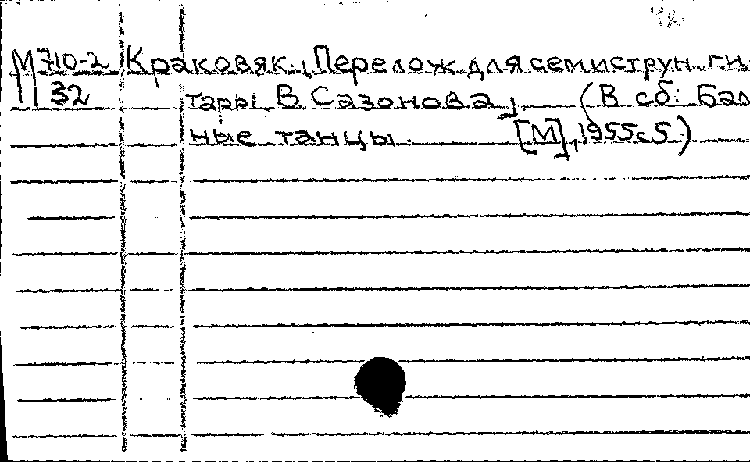 М 710-2 Краковяк. Перелож для семиструн ги
32 тары В Сазонова, (В сб: Баль
ные танцы [М], 1955 с 5)